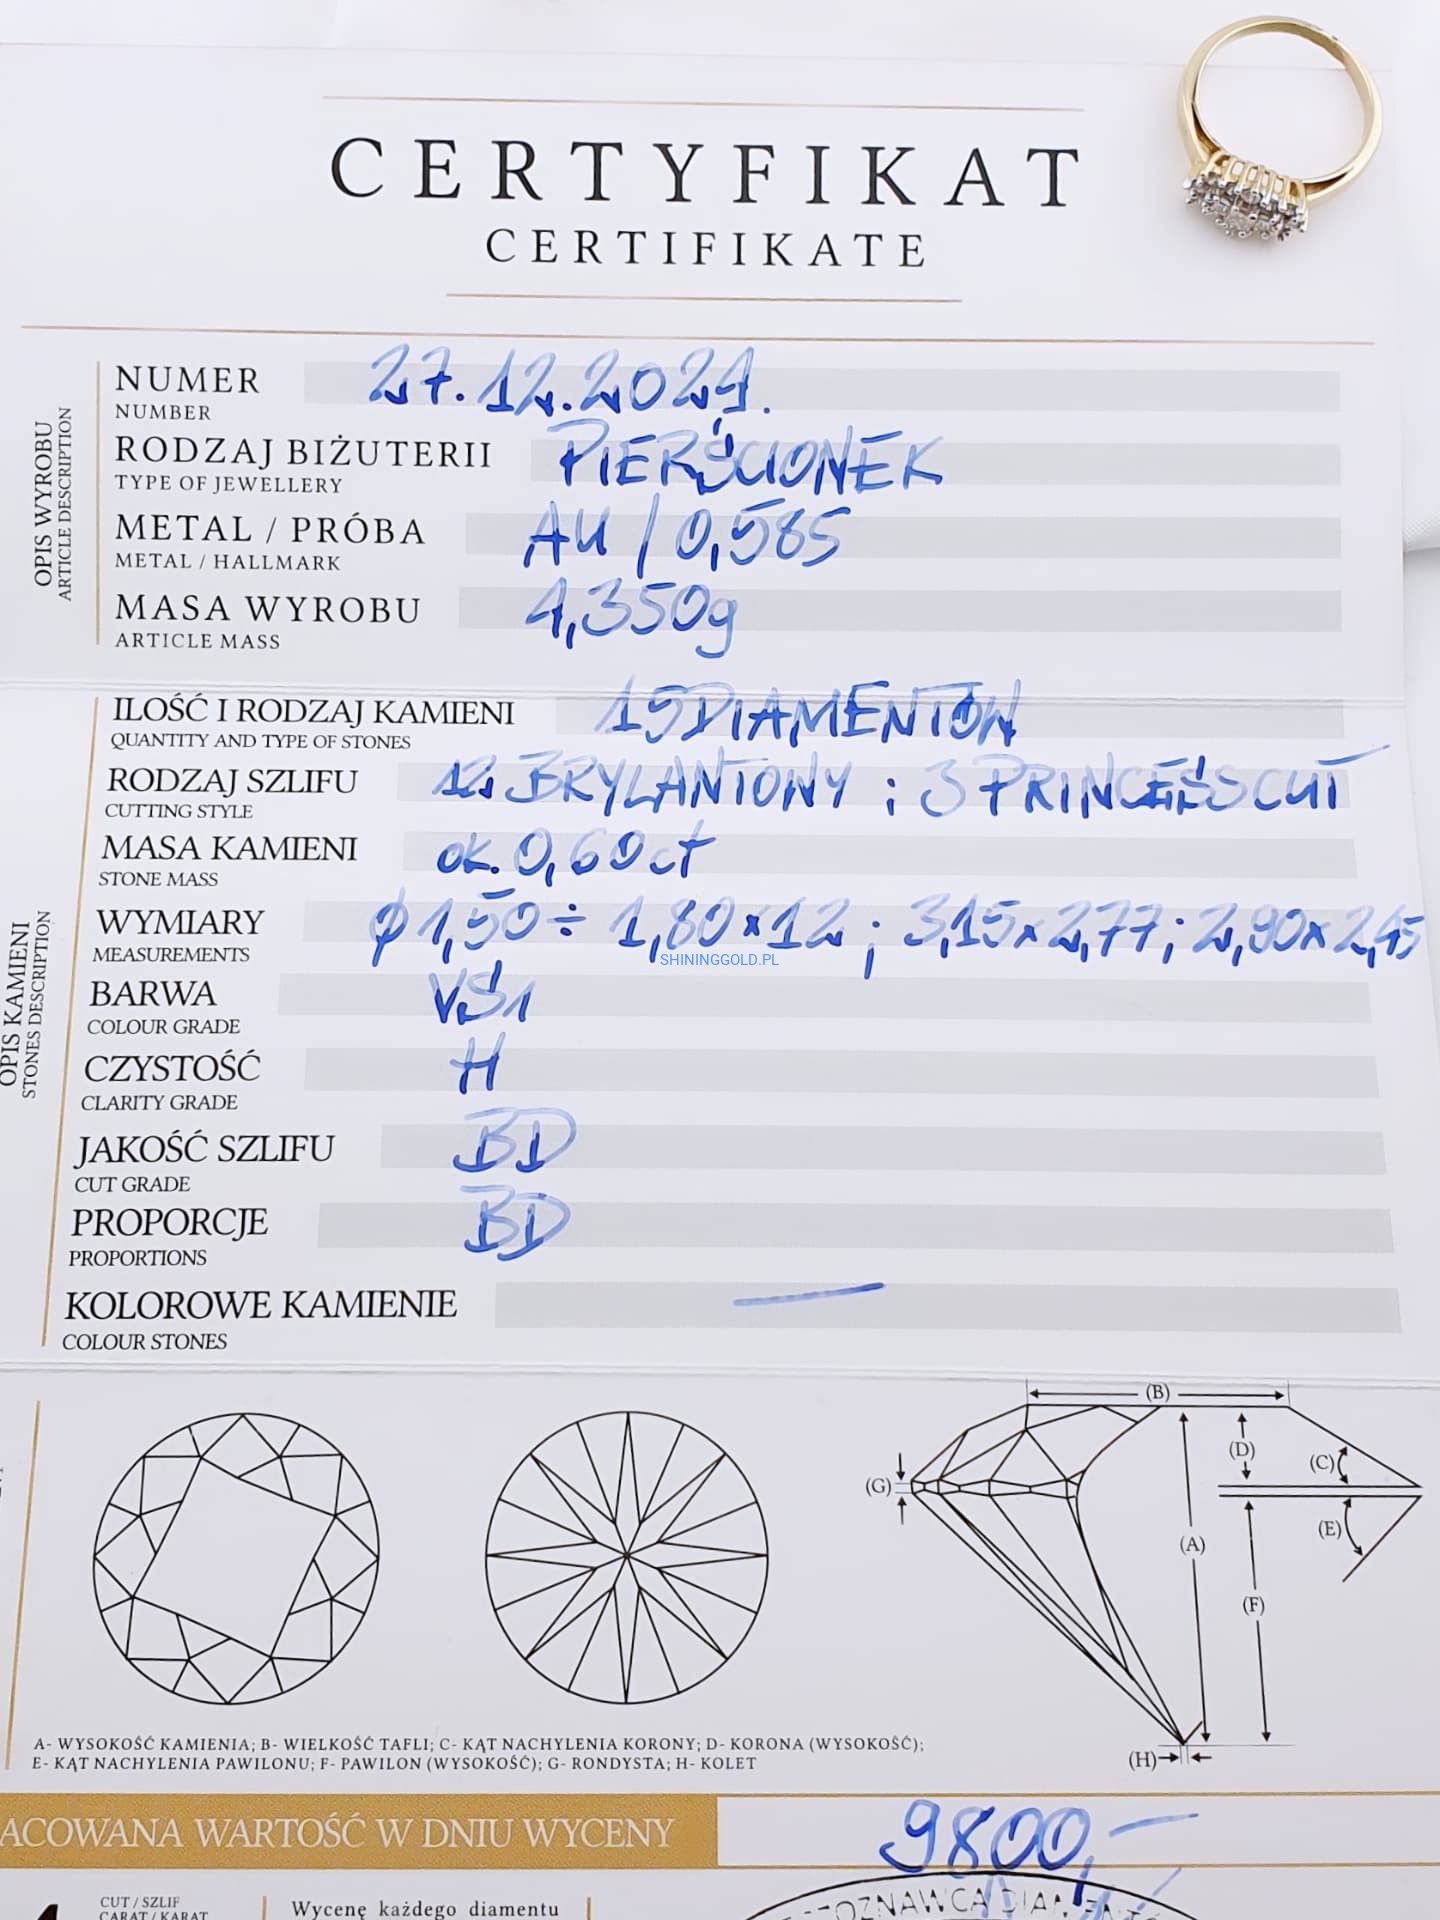 CERTYFIKAT
CERTIFIKATE
OPIS WYROBU
ARTICLE DESCRIPTION
NUMER 27.12.2021.
NUMBER
RODZAJ BIŻUTERII PIERŚCIONEK
TYPE OF JEWELLERY
METAL / PRÓBA AU / 0,585
METAL / HALLMARK
MASA WYROBU 4,350g
ARTICLE MASS
OPIS KAMIENI
STONES DESCRIPTION
ILOŚĆ I RODZAJ KAMIENI 15 DIAMENTÓW
QUANTITY AND TYPE OF STONES
RODZAJ SZLIFU 12 BRYLANTOWY ; 3 PRINCESS CUT
CUTTING STYLE
MASA KAMIENI ok. 0,60 ct
STONE MASS
WYMIARY ϕ 1,50 ÷ 1,80 x 12 ; 3,15 x 2,77 ; 2,90 x 2,45
MEASUREMENTS
SHININGGOLD.PL
BARWA VS1
COLOUR GRADE
CZYSTOŚĆ H
CLARITY GRADE
JAKOŚĆ SZLIFU BD
CUT GRADE
PROPORCJE BD
PROPORTIONS
KOLOROWE KAMIENIE —
COLOUR STONES
(B)
(D)
(C)
(G)
(E)
(A)
(F)
(H)
A- WYSOKOŚĆ KAMIENIA; B- WIELKOŚĆ TAFLI; C- KĄT NACHYLENIA KORONY; D- KORONA (WYSOKOŚĆ);
E- KĄT NACHYLENIA PAWILONU; F- PAWILON (WYSOKOŚĆ); G- RONDYSTA; H- KOLET
ACOWANA WARTOŚĆ W DNIU WYCENY 9800,-
CUT / SZLIF
CARAT / KARAT
Wycenę każdego diamentu